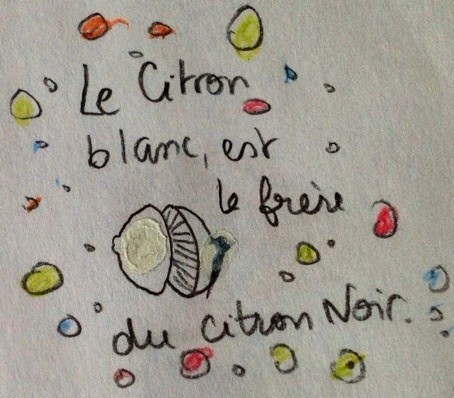 Le Citron
blanc, est
le frère
du citron Noir.